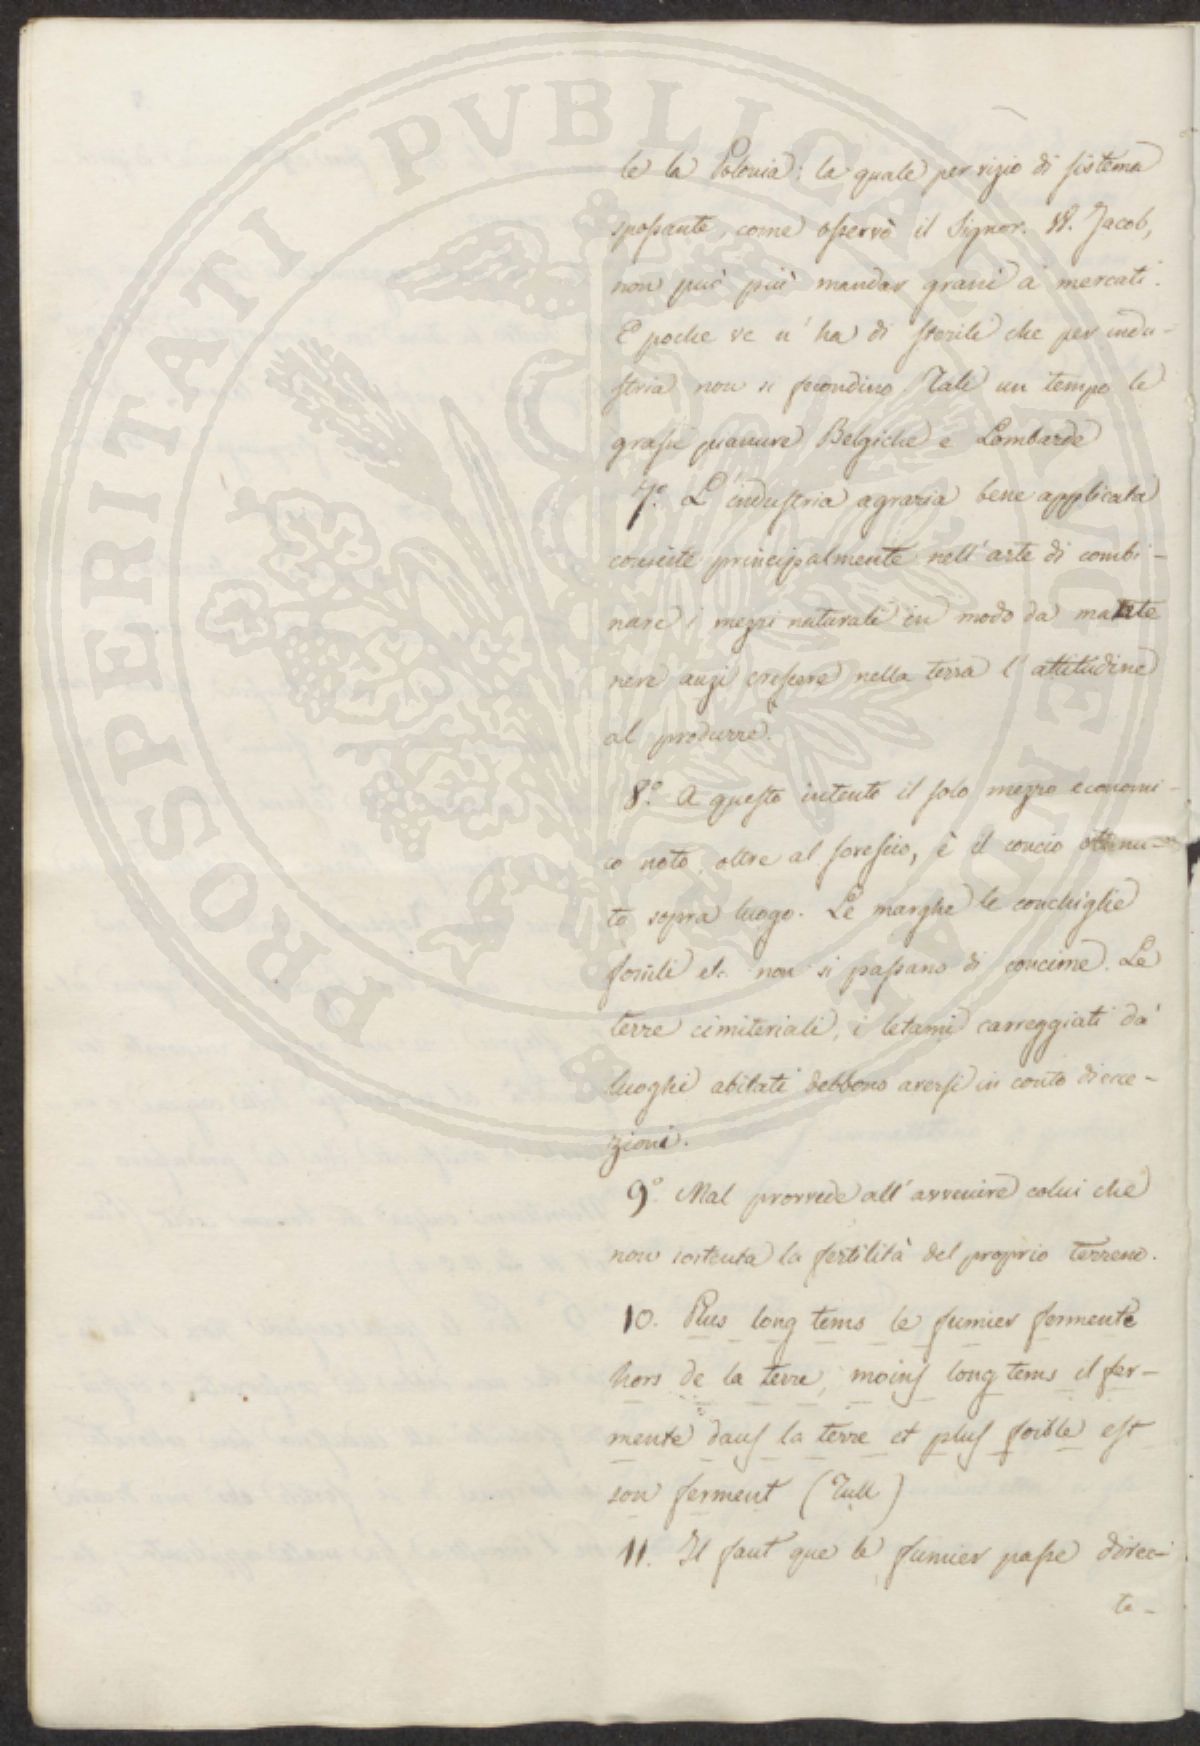 PROSPERITATI PVBLICAE AVGENDAE
le la Polonia: la quale per vizio di sistema
spossante, come osservò il Signor. W. Jacob,
non può più mandar grani a' mercati.
E poche ve n'ha di sterili che per indu-
stria non si fecondino. Tali un tempo le
grasse pianure Belgiche e Lombarde
7.° L'industria agraria bene applicata
consiste principalmente nell'arte di combi-
nare i mezzi naturali in modo da mante
nere anzi crescere nella terra l'attitudine
al produrre.
8.° A questo intento il solo mezzo economi-
co noto, oltre al sovescio, è il concio ottenu-
to sopra luogo. Le marghe le conchiglie
fossili etc. non si passano di concime. Le
terre cimiteriali, i letami carreggiati da'
luoghi abitati debbono aversi in conto di ecce-
zioni.
9.° Mal provvede all'avvenire colui che
non sostenta la fertilità del proprio terreno.
10. Plus long tems le fumier fermente
hors de la terre, moins long tems il fer-
mente dans la terre et plus foible est
son ferment (Tull)
11. Il faut que le fumier passe direc-
te-